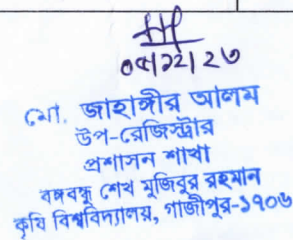 ০৫/১২/২৩
মো. জাহাঙ্গীর আলম
উপ-রেজিস্ট্রার
প্রশাসন শাখা
বঙ্গবন্ধু শেখ মুজিবুর রহমান
কৃষি বিশ্ববিদ্যালয়, গাজীপুর-১৭০৬